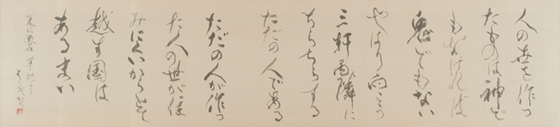 人の世を作つ
たものは神で
もなければ
鬼でもない
やはり向う
三軒両隣に
ちらちらする
ただの人である
ただの人が作つ
た人の世が住
みにくいからとて
越す国は
あるまい